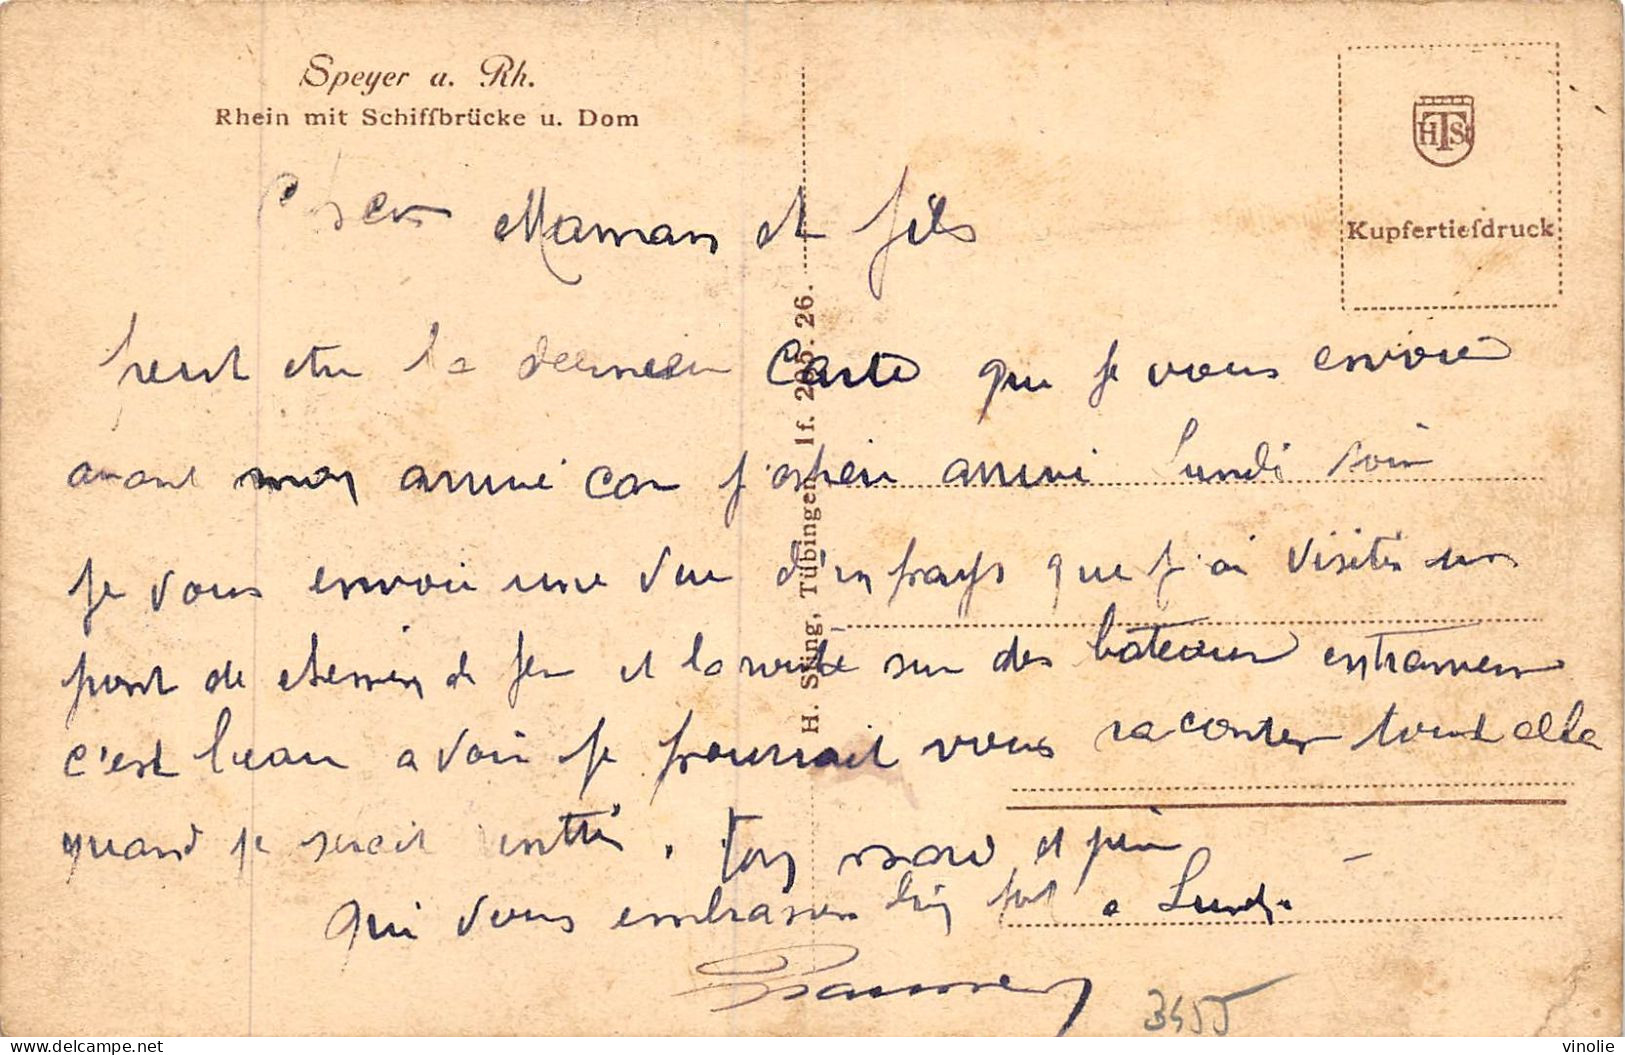 Speyer a. Rh.
Rhein mit Schiffbrücke u. Dom
HTS
Kupfertiefdruck
H. Sting, Tübingen, 1f. 26.
Maman et fils
peut etre la derniere Carte que je vous envoie
avant mon arrivé car j'espere arrivé Lundi soir
je vous envoie une vue d'un pays que j'ai visité un
pont de chemin de fer et la route sur des bateaux
c'est beau a voir je pourrait vous raconter tout cela
quand je serait rentré. Ton mari et père
qui vous embrasse bien fort a Lundi
3455
vinolie